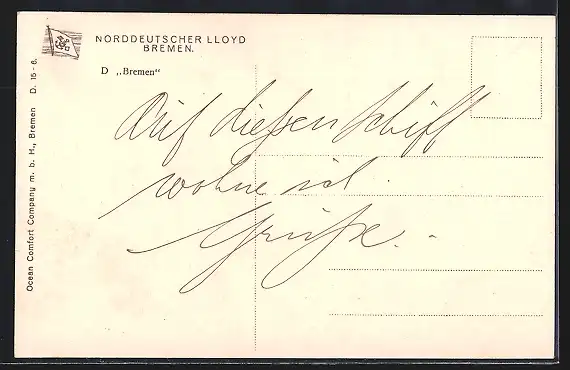 NORDDEUTSCHER LLOYD
BREMEN.
D „Bremen“
Auf diesen Schiff
wohne ich.
Grüße.-
Ocean Comfort Company m. b. H., Bremen D. 15-6.